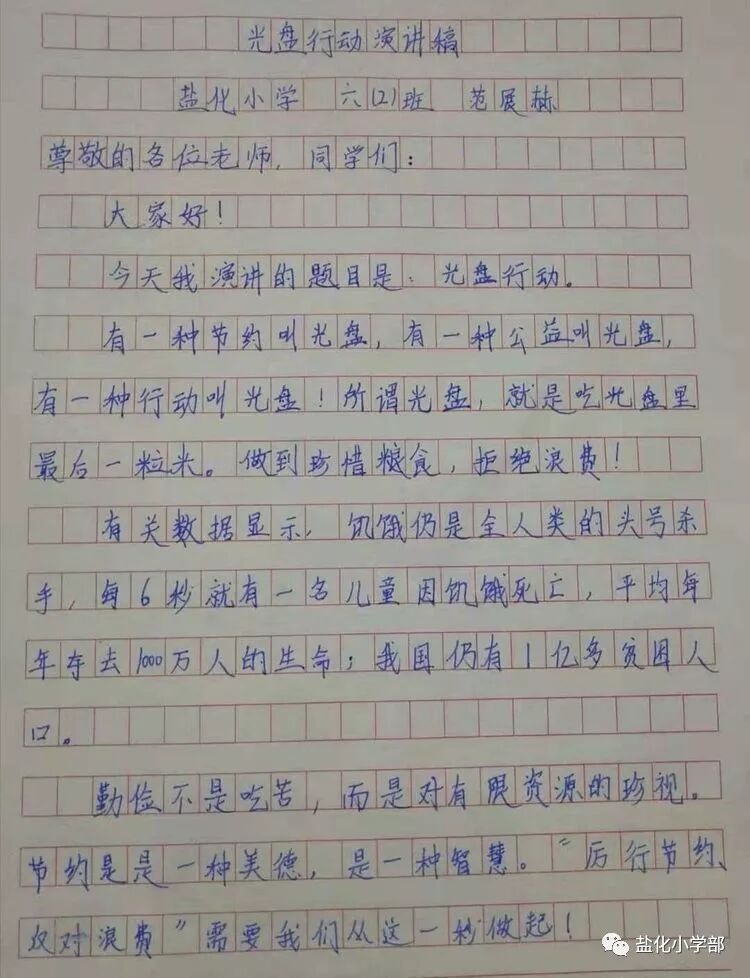 光盘行动演讲稿
盐化小学 六(2)班 范展赫
尊敬的各位老师,同学们:
大家好!
今天我演讲的题目是:光盘行动。
有一种节约叫光盘,有一种公益叫光盘,
有一种行动叫光盘!所谓光盘,就是吃光盘里
最后一粒米。做到珍惜粮食,拒绝浪费!
有关数据显示,饥饿仍是全人类的头号杀
手,每6秒就有一名儿童因饥饿死亡,平均每
年夺去1000万人的生命;我国仍有1亿多贫困人
口。
勤俭不是吃苦,而是对有限资源的珍视。
节约是是一种美德,是一种智慧。“厉行节约、
反对浪费”需要我们从这一秒做起!
盐化小学部